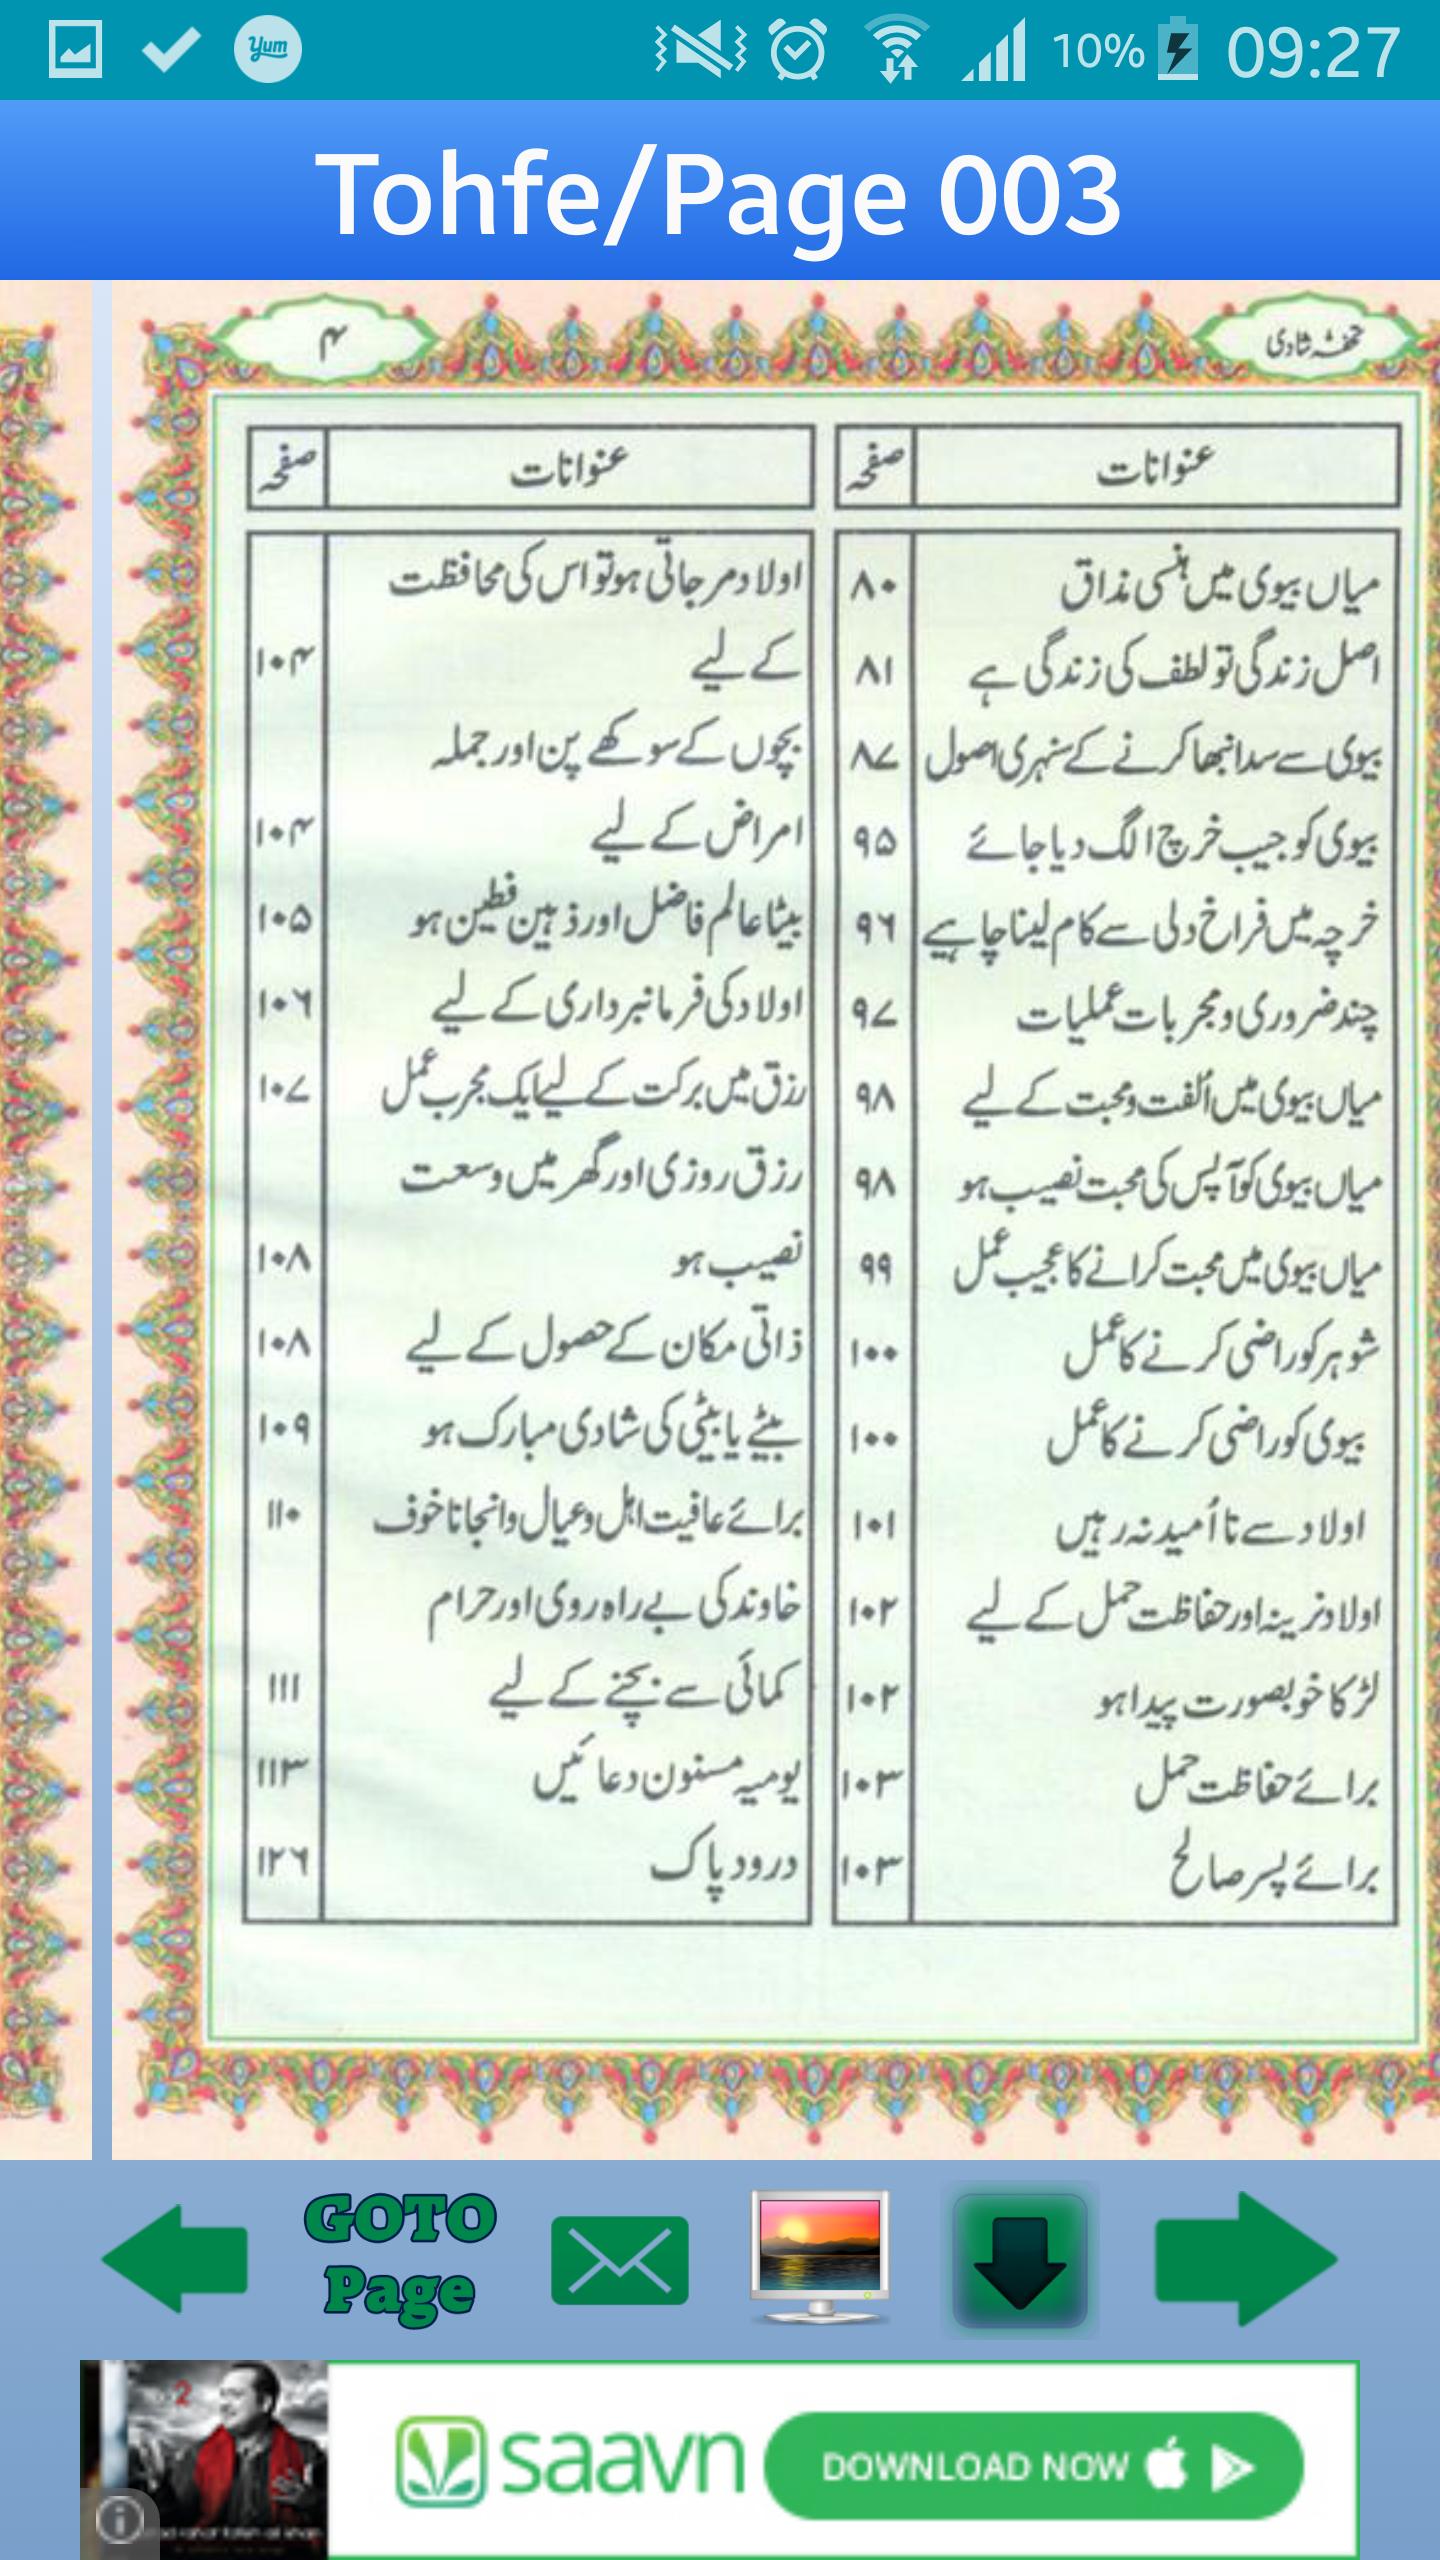 Yum
10%
09:27
Tohfe/Page 003
تحفۂ شادی
۴
عنوانات صفحہ
میاں بیوی میں ہنسی مذاق ۸۰
اصل زندگی تو لطف کی زندگی ہے ۸۱
بیوی سے سدا نبھا کرنے کے سنہری اصول ۸۷
بیوی کو جیب خرچ الگ دیا جائے ۹۵
خرچہ میں فراخ دلی سے کام لینا چاہیے ۹۶
چند ضروری و مجربات عملیات ۹۷
میاں بیوی میں اُلفت و محبت کے لیے ۹۸
میاں بیوی کو آپس کی محبت نصیب ہو ۹۸
میاں بیوی میں محبت کرانے کا عجیب عمل ۹۹
شوہر کو راضی کرنے کا عمل ۱۰۰
بیوی کو راضی کرنے کا عمل ۱۰۰
اولاد سے نا اُمید نہ رہیں ۱۰۱
اولاد نرینہ اور حفاظت حمل کے لیے ۱۰۲
لڑکا خوبصورت پیدا ہو ۱۰۲
برائے حفاظت حمل ۱۰۳
برائے پسر صالح ۱۰۳
عنوانات صفحہ
اولاد مر جاتی ہو تو اس کی محافظت
کے لیے ۱۰۴
بچوں کے سوکھے پن اور جملہ
امراض کے لیے ۱۰۴
بیٹا عالم فاضل اور ذہین فطین ہو ۱۰۵
اولاد کی فرمانبرداری کے لیے ۱۰۶
رزق میں برکت کے لیے ایک مجرب عمل ۱۰۷
رزق روزی اور گھر میں وسعت
نصیب ہو ۱۰۸
ذاتی مکان کے حصول کے لیے ۱۰۸
بیٹے یا بیٹی کی شادی مبارک ہو ۱۰۹
برائے عافیت اہل و عیال و انجانا خوف ۱۱۰
خاوند کی بے راہ روی اور حرام
کمائی سے بچنے کے لیے ۱۱۱
یومیہ مسنون دعائیں ۱۱۳
درود پاک ۱۲۶
GOTO
Page
2
saavn
DOWNLOAD NOW